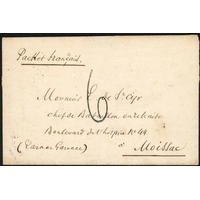 Packet français.
6
Monsieur L. de St Cyr
chef de Bataillon en retraite
Boulevard de l'hospice No 44
à Moissac
(Tarn et Garonne)